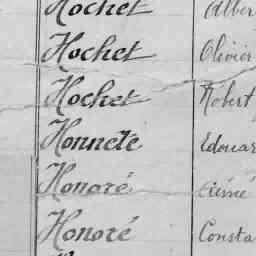 Hochet Alber
Hochet Olivier
Hochet Robert
Honnete Edouar
Honoré Aimé
Honoré Consta